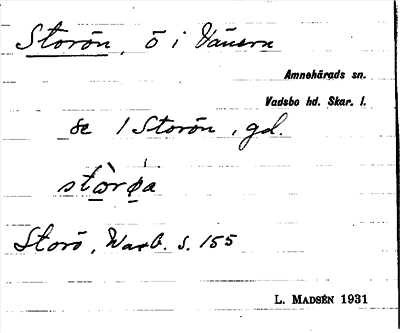 Storön, ö i Vänern
Amnehärads sn.
Vadsbo hd. Skar. l.
se 1 Storön, gd.
Storö, Warb. S. 155
L. MADSÉN 1931